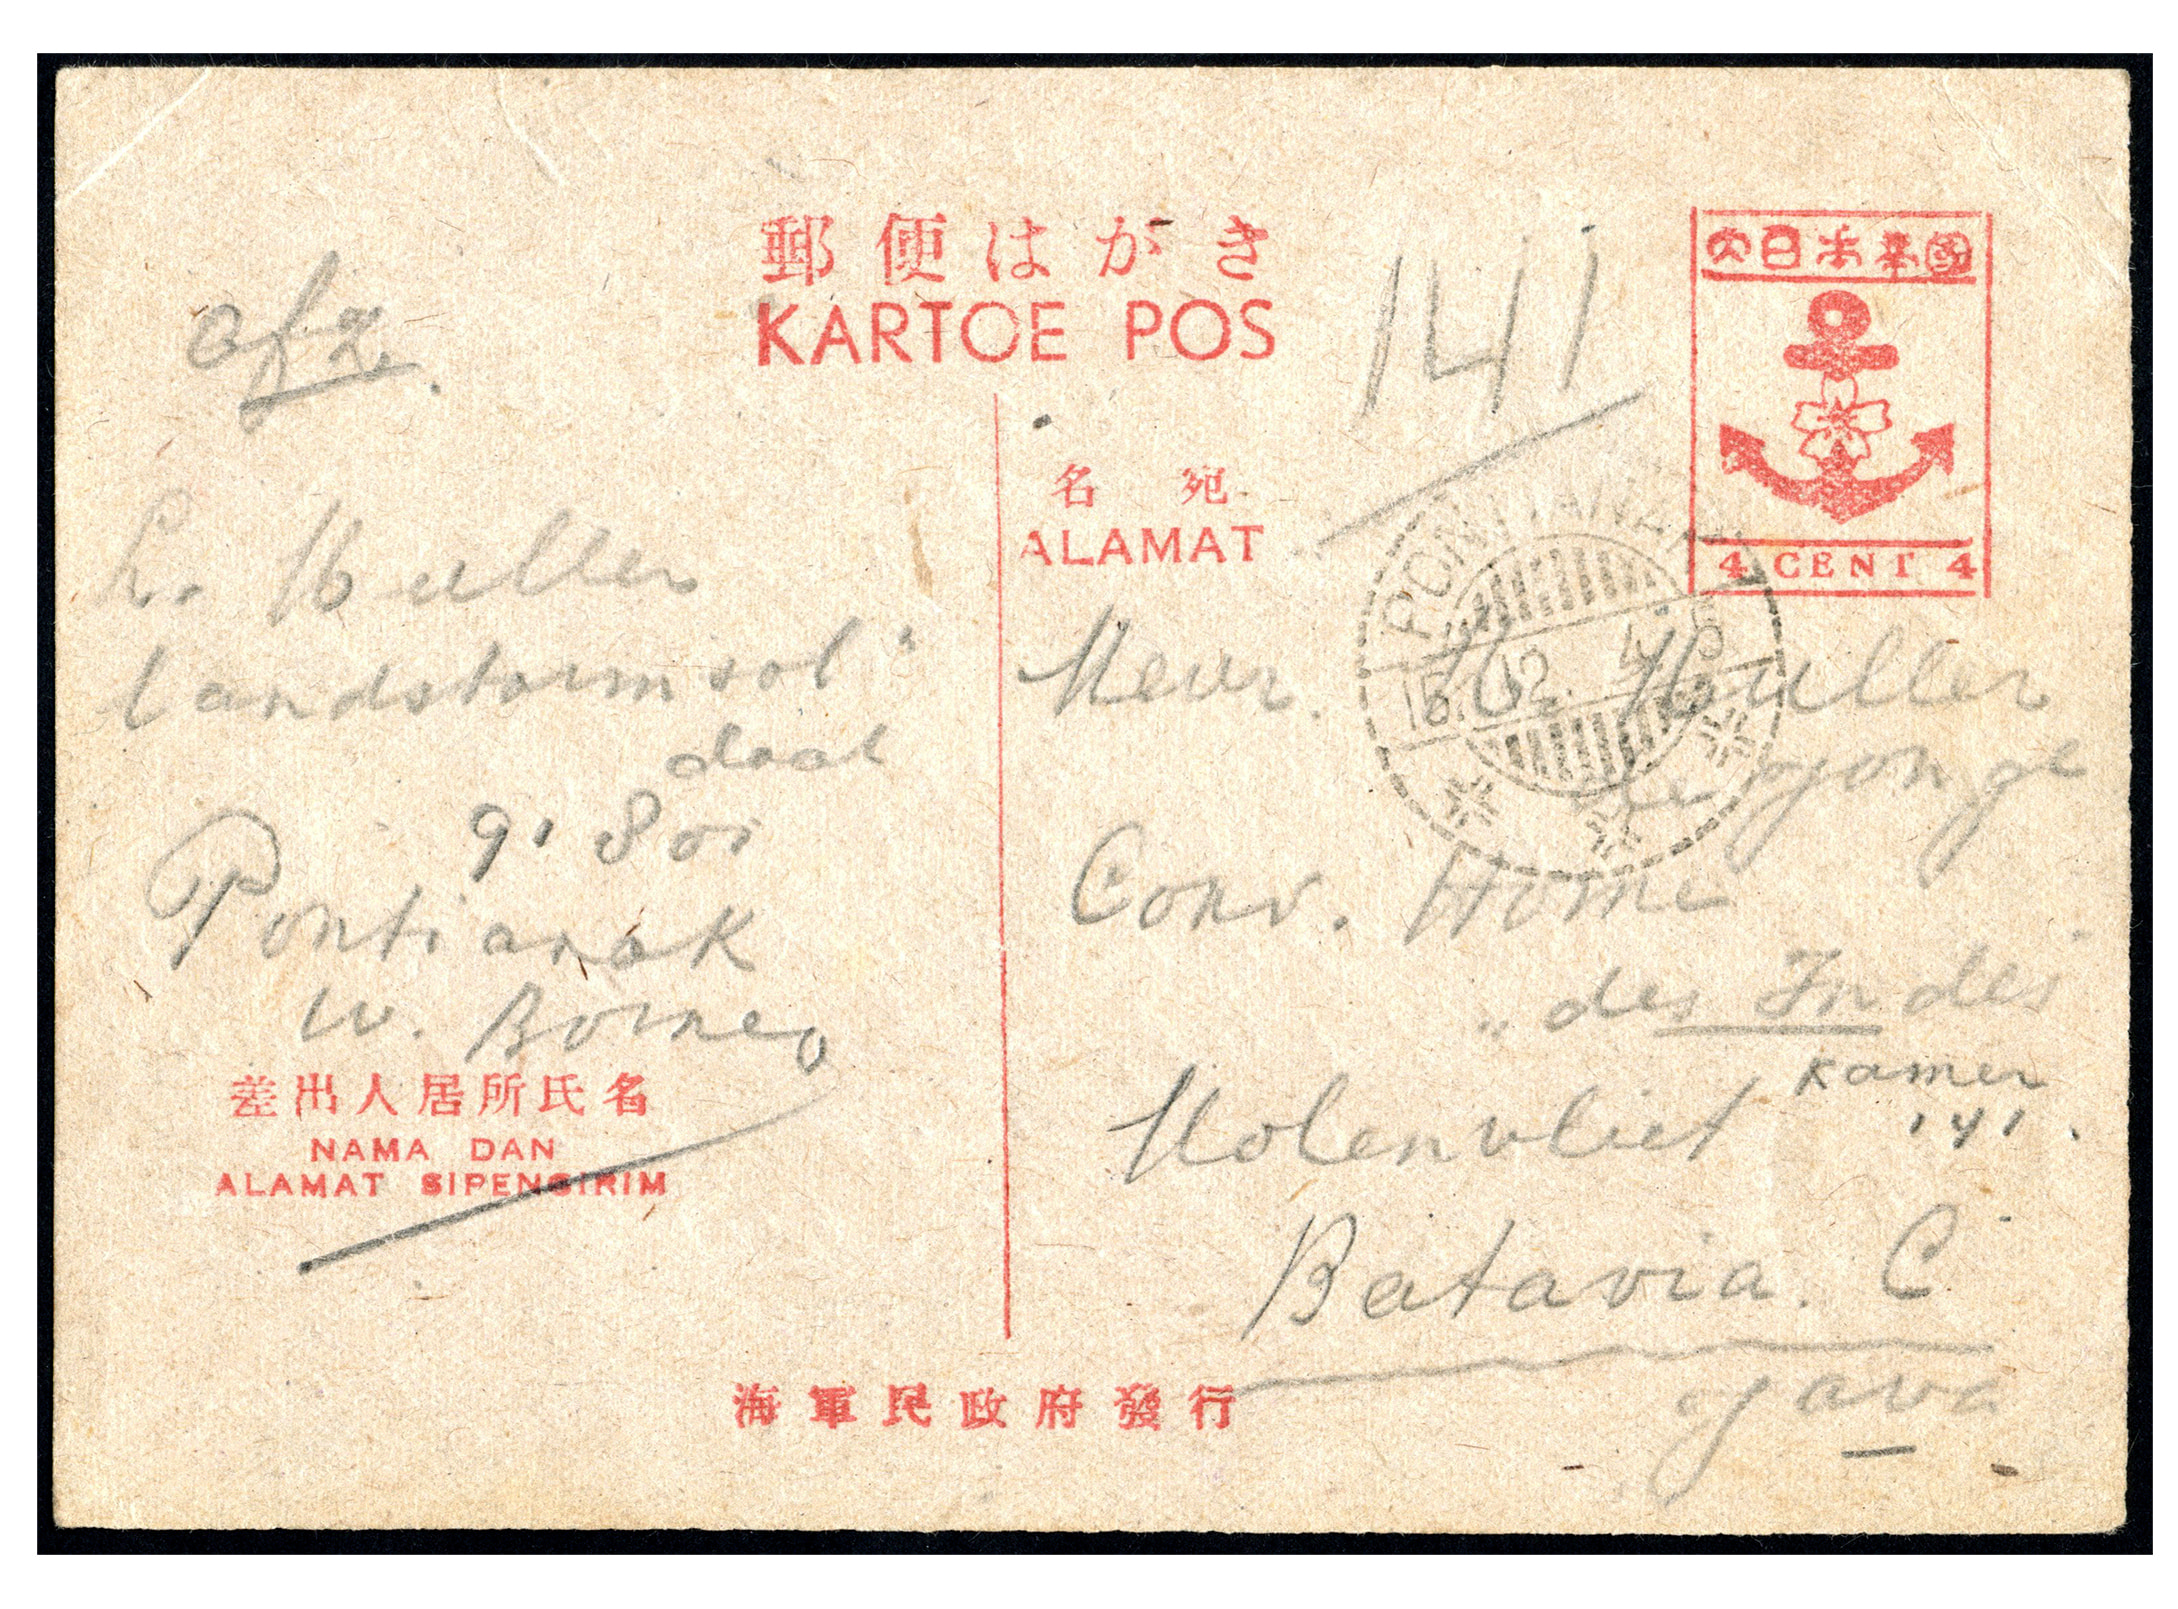 郵便はがき
KARTOE POS
141
大日本帝國
4 CENT 4
afz.
L. Muller
landstormsol"
daat
91801
Pontianak
W. Borneo
差出人居所氏名
NAMA DAN
ALAMAT SIPENGIRIM
名宛
ALAMAT
PONTIANAK
Mevr. M. Muller
de Jonge
Conv. Home
„des Indes"
Molenvliet
Kamer
141.
Batavia. C
Java
海軍民政府發行